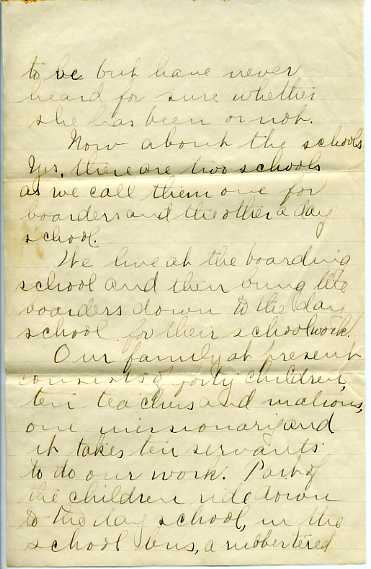 to be but have never
heard for sure whether
she has been or not.
Now about the schools
Yes, there are two schools
as we call them one for
boarders and the other a day
school.
We live at the boarding
school and then bring the
boarders down to the day
school for their schoolwork.
Our family at present
consists of forty children,
ten teachers and matrons,
one missionary and
it takes ten servants
to do our work. Part of
the children ride down
to the day school, in the
school bus, a rubber tered